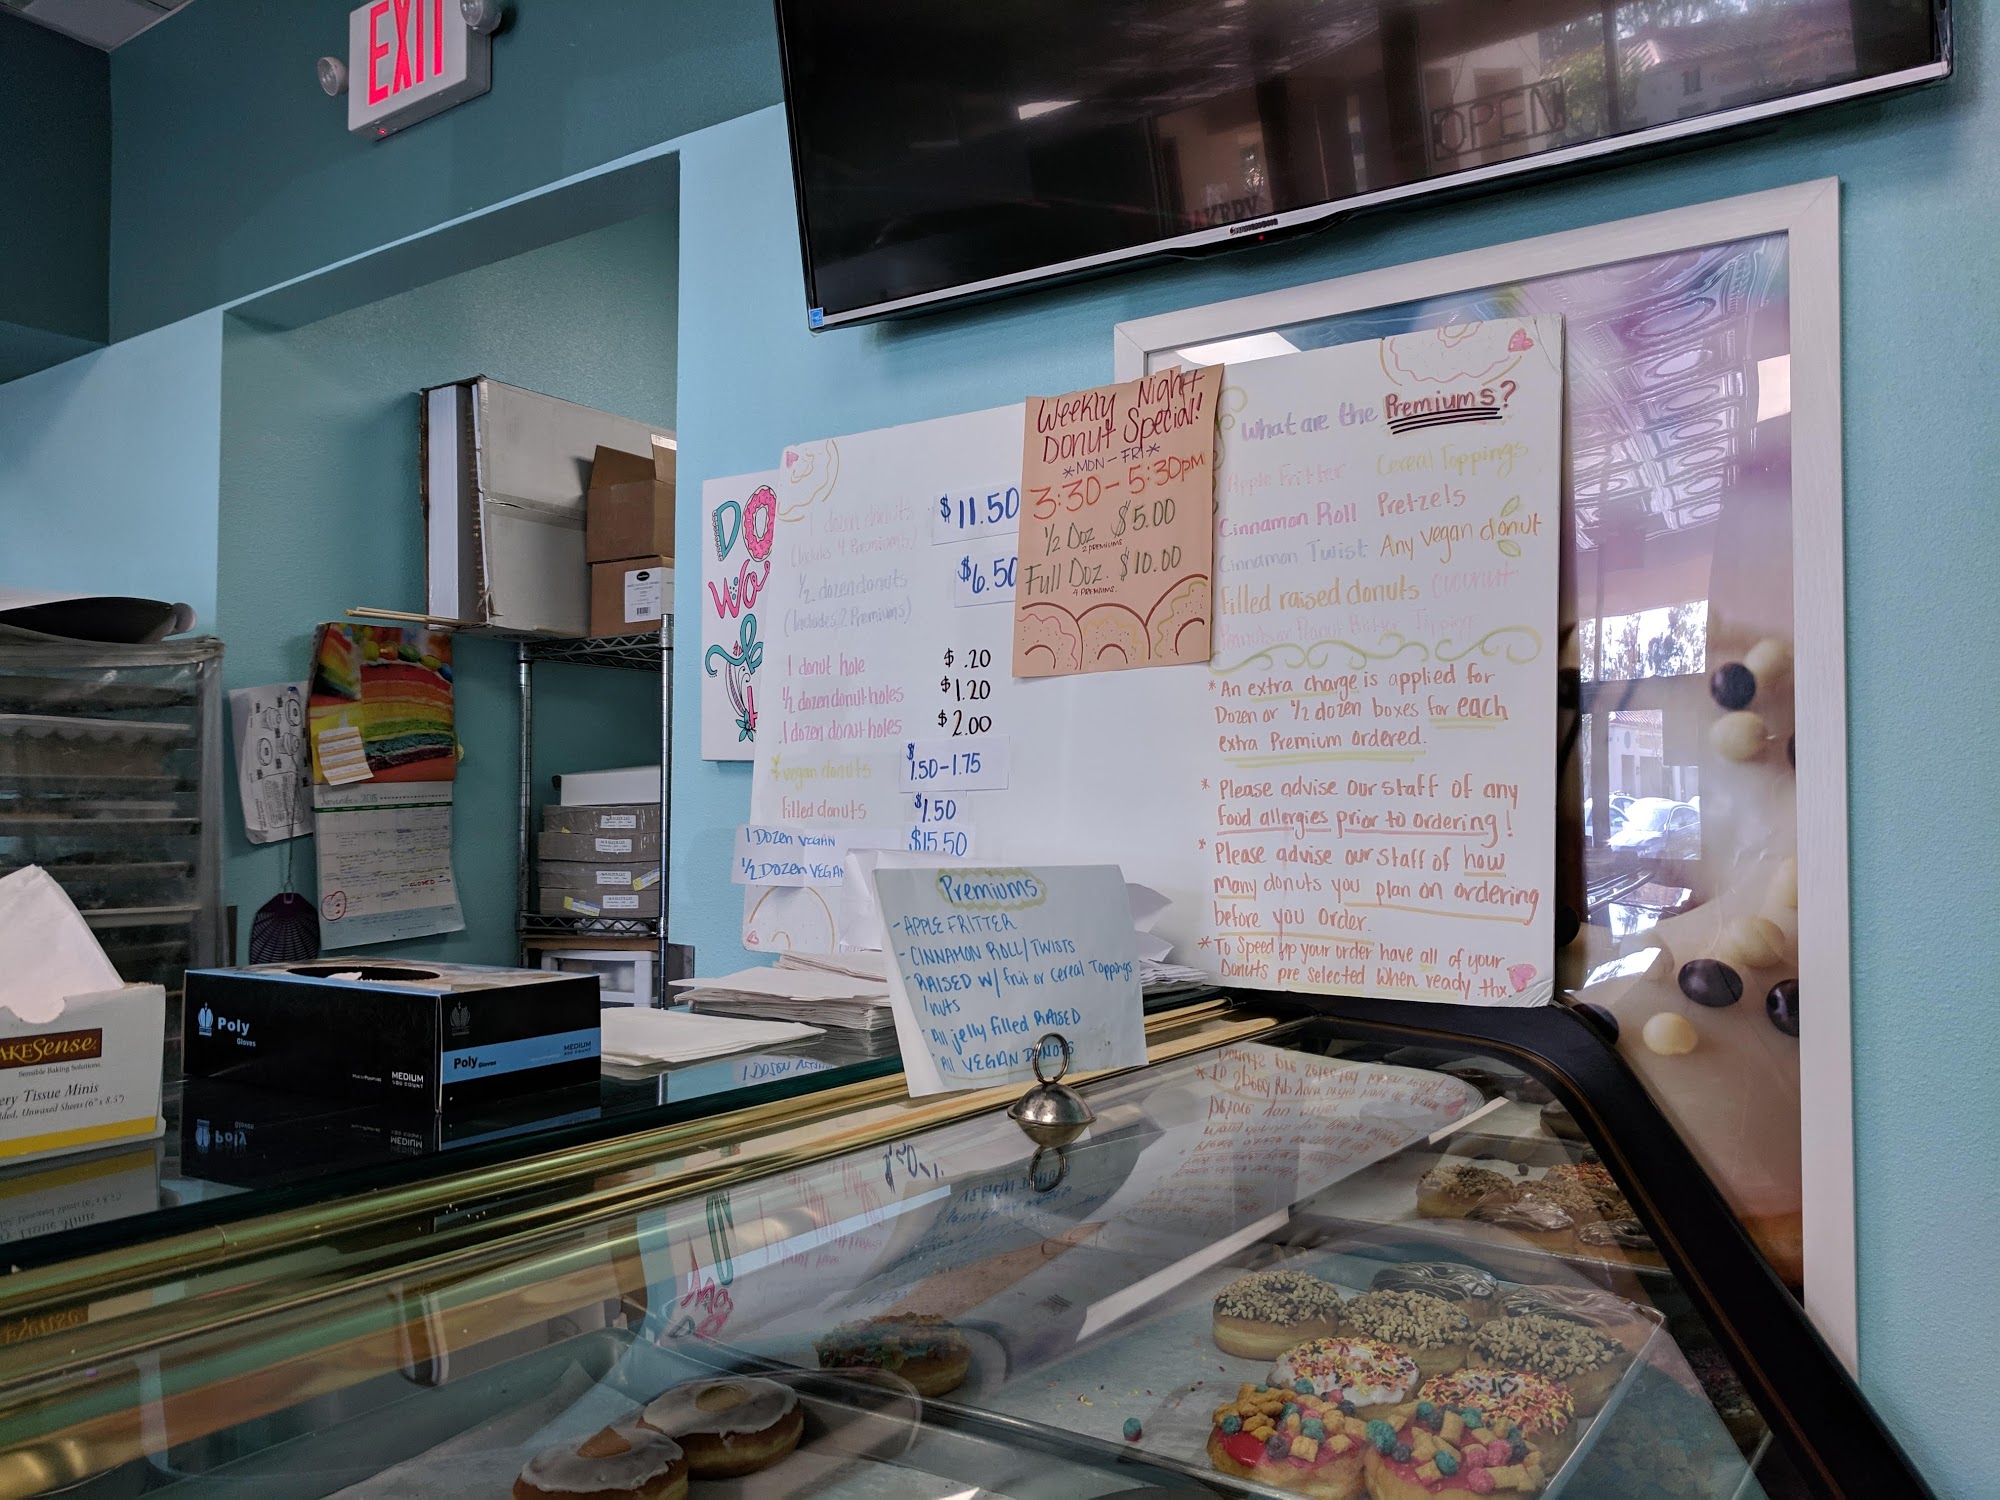 EXIT
OPEN
Weekly Night
Donut Special!
*MON - FRI*
3:30 - 5:30pm
1/2 Doz $5.00
2 PREMIUMS
Full Doz. $10.00
4 PREMIUMS.
DO
1 dozen donuts $11.50
(Includes 4 Premiums)
1/2 dozen donuts $6.50
(Includes 2 Premiums)
1 donut hole $ .20
1/2 dozen donut holes $1.20
1 dozen donut holes $2.00
vegan donuts $1.50-1.75
filled donuts $1.50
1 DOZEN VEGAN $15.50
1/2 DOZEN VEGAN
What are the Premiums?
Apple Fritter Cereal Toppings
Cinnamon Roll Pretzels
Cinnamon Twist Any vegan donut
Filled raised donuts Coconut
* An extra charge is applied for
Dozen or 1/2 dozen boxes for each
extra Premium ordered.
* Please advise our staff of any
food allergies prior to ordering!
* Please advise our staff of how
many donuts you plan on ordering
before you order.
* To Speed up your order have all of your
Donuts pre selected when ready. thx.
Premiums
- APPLE FRITTER
- CINNAMON ROLL/TWISTS
- RAISED W/ fruit or cereal Toppings
/nuts
- All jelly filled RAISED
- All VEGAN DONUTS
November 2018
CLOSED
Poly
Gloves
MEDIUM
Poly
Gloves
MEDIUM
AKESense
Sensible Baking Solutions
ery Tissue Minis